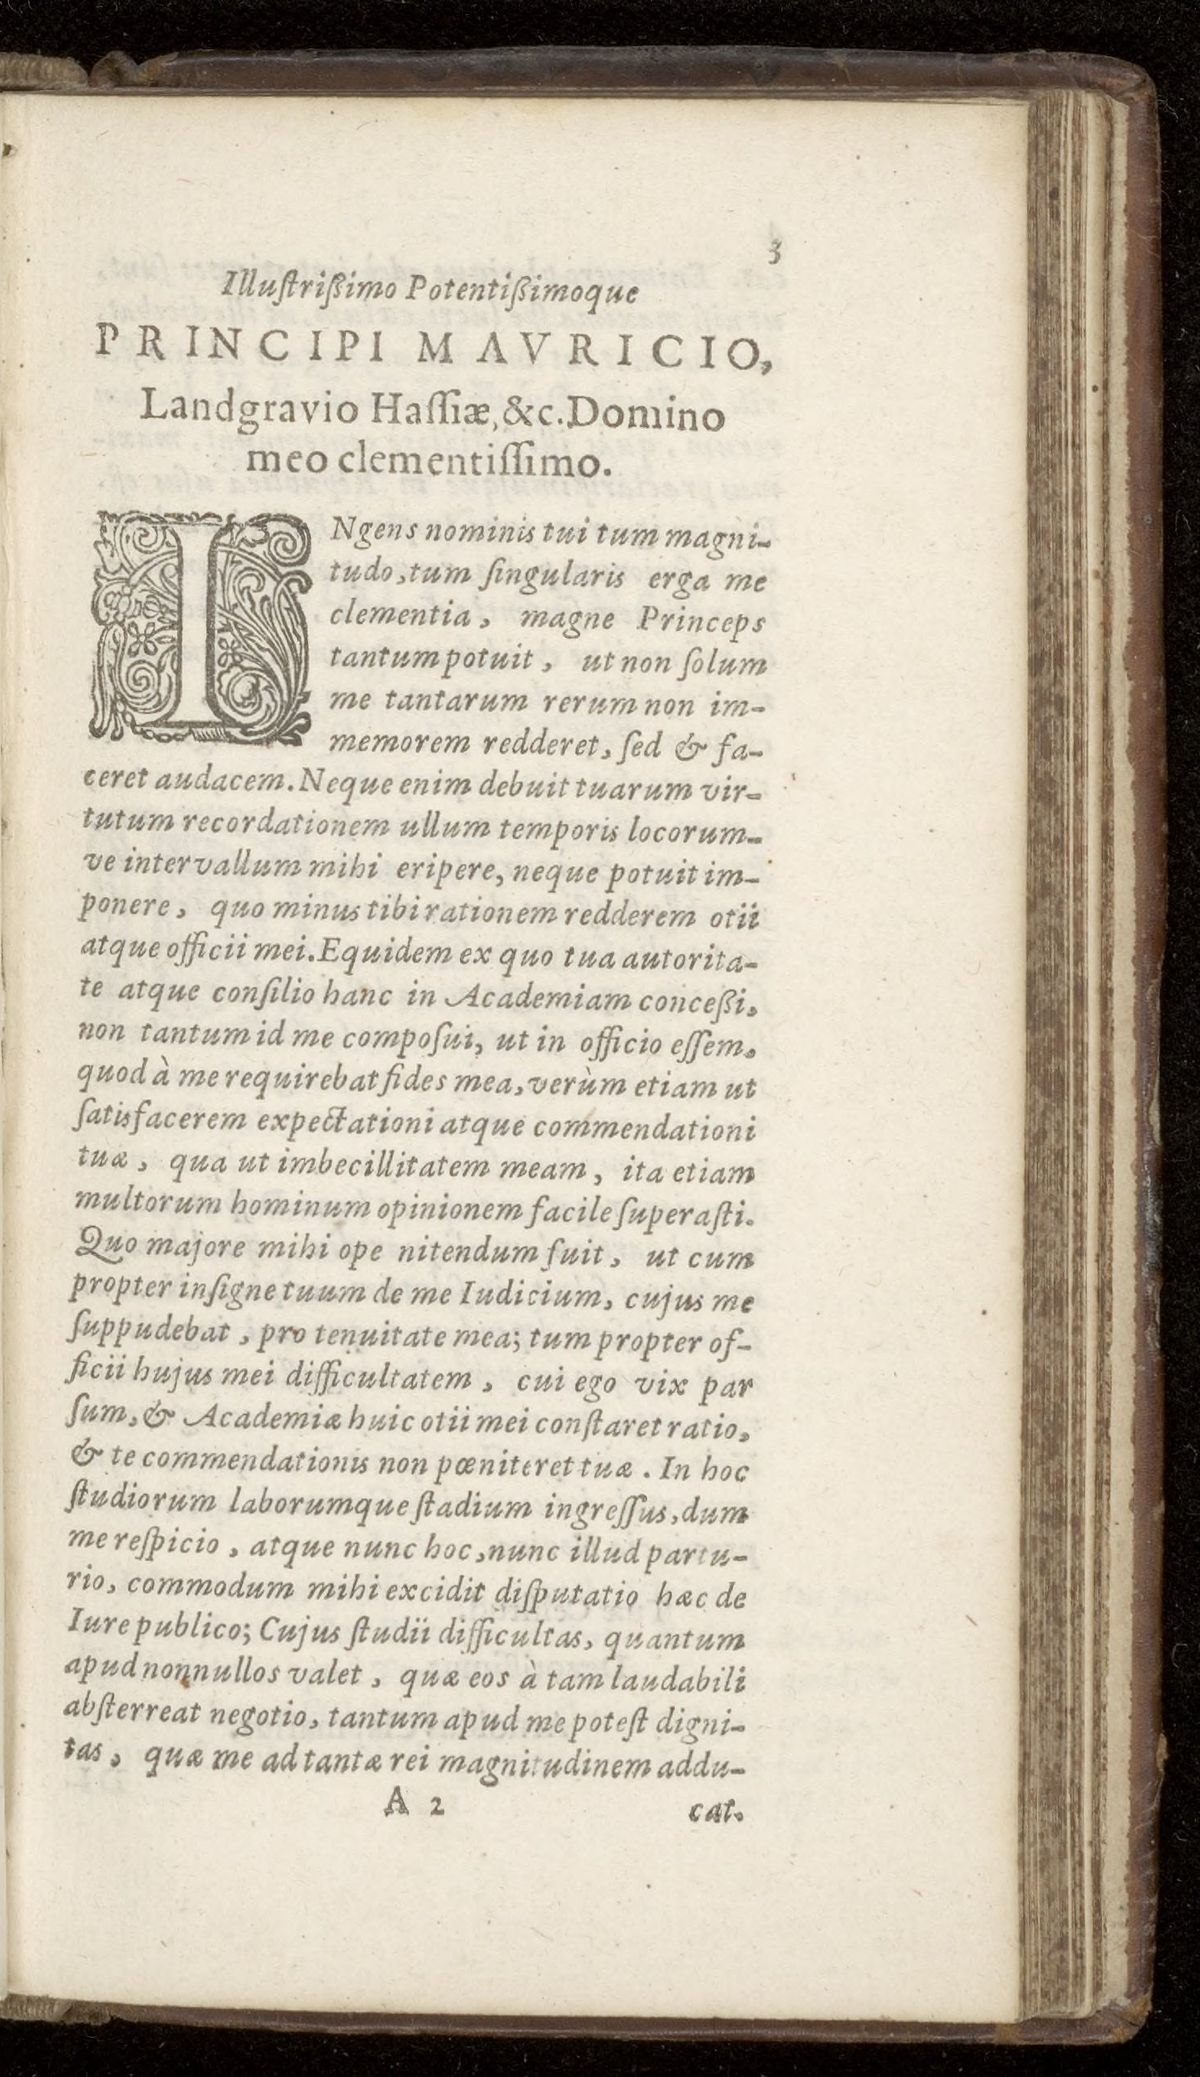 3
Illuſtriſsimo Potentiſsimoque
PRINCIPI MAVRICIO,
Landgravio Haſſiæ, &c. Domino
meo clementiſſimo.
INgens nominis tui tum magni-
tudo, tum ſingularis erga me
clementia, magne Princeps
tantum potuit, ut non ſolum
me tantarum rerum non im-
memorem redderet, ſed & fa-
ceret audacem. Neque enim debuit tuarum vir-
tutum recordationem ullum temporis locorum-
ve intervallum mihi eripere, neque potuit im-
ponere, quo minus tibi rationem redderem otii
atque officii mei. Equidem ex quo tua autorita-
te atque conſilio hanc in Academiam conceſsi,
non tantum id me compoſui, ut in officio eſſem,
quod à me requirebat fides mea, verùm etiam ut
ſatisfacerem expectationi atque commendationi
tuæ, qua ut imbecillitatem meam, ita etiam
multorum hominum opinionem facile ſuperaſti.
Quo majore mihi ope nitendum fuit, ut cum
propter inſigne tuum de me Iudicium, cujus me
ſuppudebat, pro tenuitate mea; tum propter of-
ficii hujus mei difficultatem, cui ego vix par
ſum, & Academiæ huic otii mei conſtaret ratio,
& te commendationis non pœniteret tuæ. In hoc
ſtudiorum laborumque ſtadium ingreſſus, dum
me reſpicio, atque nunc hoc, nunc illud partu-
rio, commodum mihi excidit diſputatio hæc de
Iure publico; Cujus ſtudii difficultas, quantum
apud nonnullos valet, quæ eos à tam laudabili
abſterreat negotio, tantum apud me poteſt digni-
tas, quæ me ad tantæ rei magnitudinem addu-
A 2 cat.